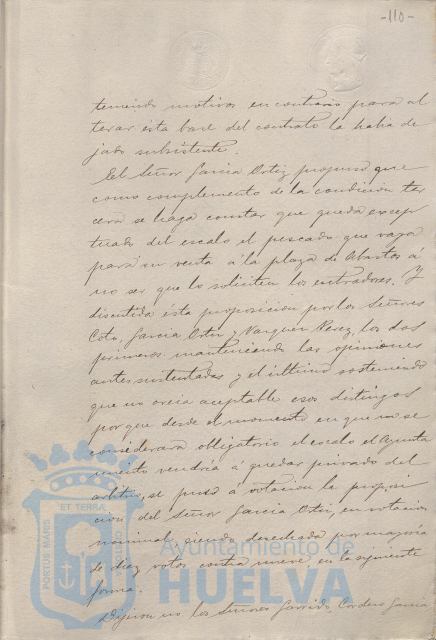 -110-
teniendo motivos en contrario para al
terar ésta base del contrato la había de
jado subsistente.
El Señor García Ortiz propuso que
como complemento de la condición ter
cera se haga constar que queda excep
tuado del escalo el pescado que vaya
para su venta á la plaza de Abastos á
no ser que lo soliciten los entradores. Y
discutida ésta proposición por los Señores
Coto, García Ortiz y Vazquez Perez, los dos
primeros manteniendo las opiniones
antes sustentadas y el último sosteniendo
que no creia aceptable esos distingos
porque desde el momento en que no se
considerara obligatorio el escalo el Ayunta
miento vendría á quedar privado del
arbitrio, se puso á votacion la proposi
cion del Señor García Ortiz, en votacion
nominal, siendo desechada por mayoría
de diez votos contra nueve, en la siguiente
forma.
Dijeron no los Señores Garrido, Cordero, García
PORTUS MARIS
ET TERRAE
CUSTODIA
Ayuntamiento de
HUELVA